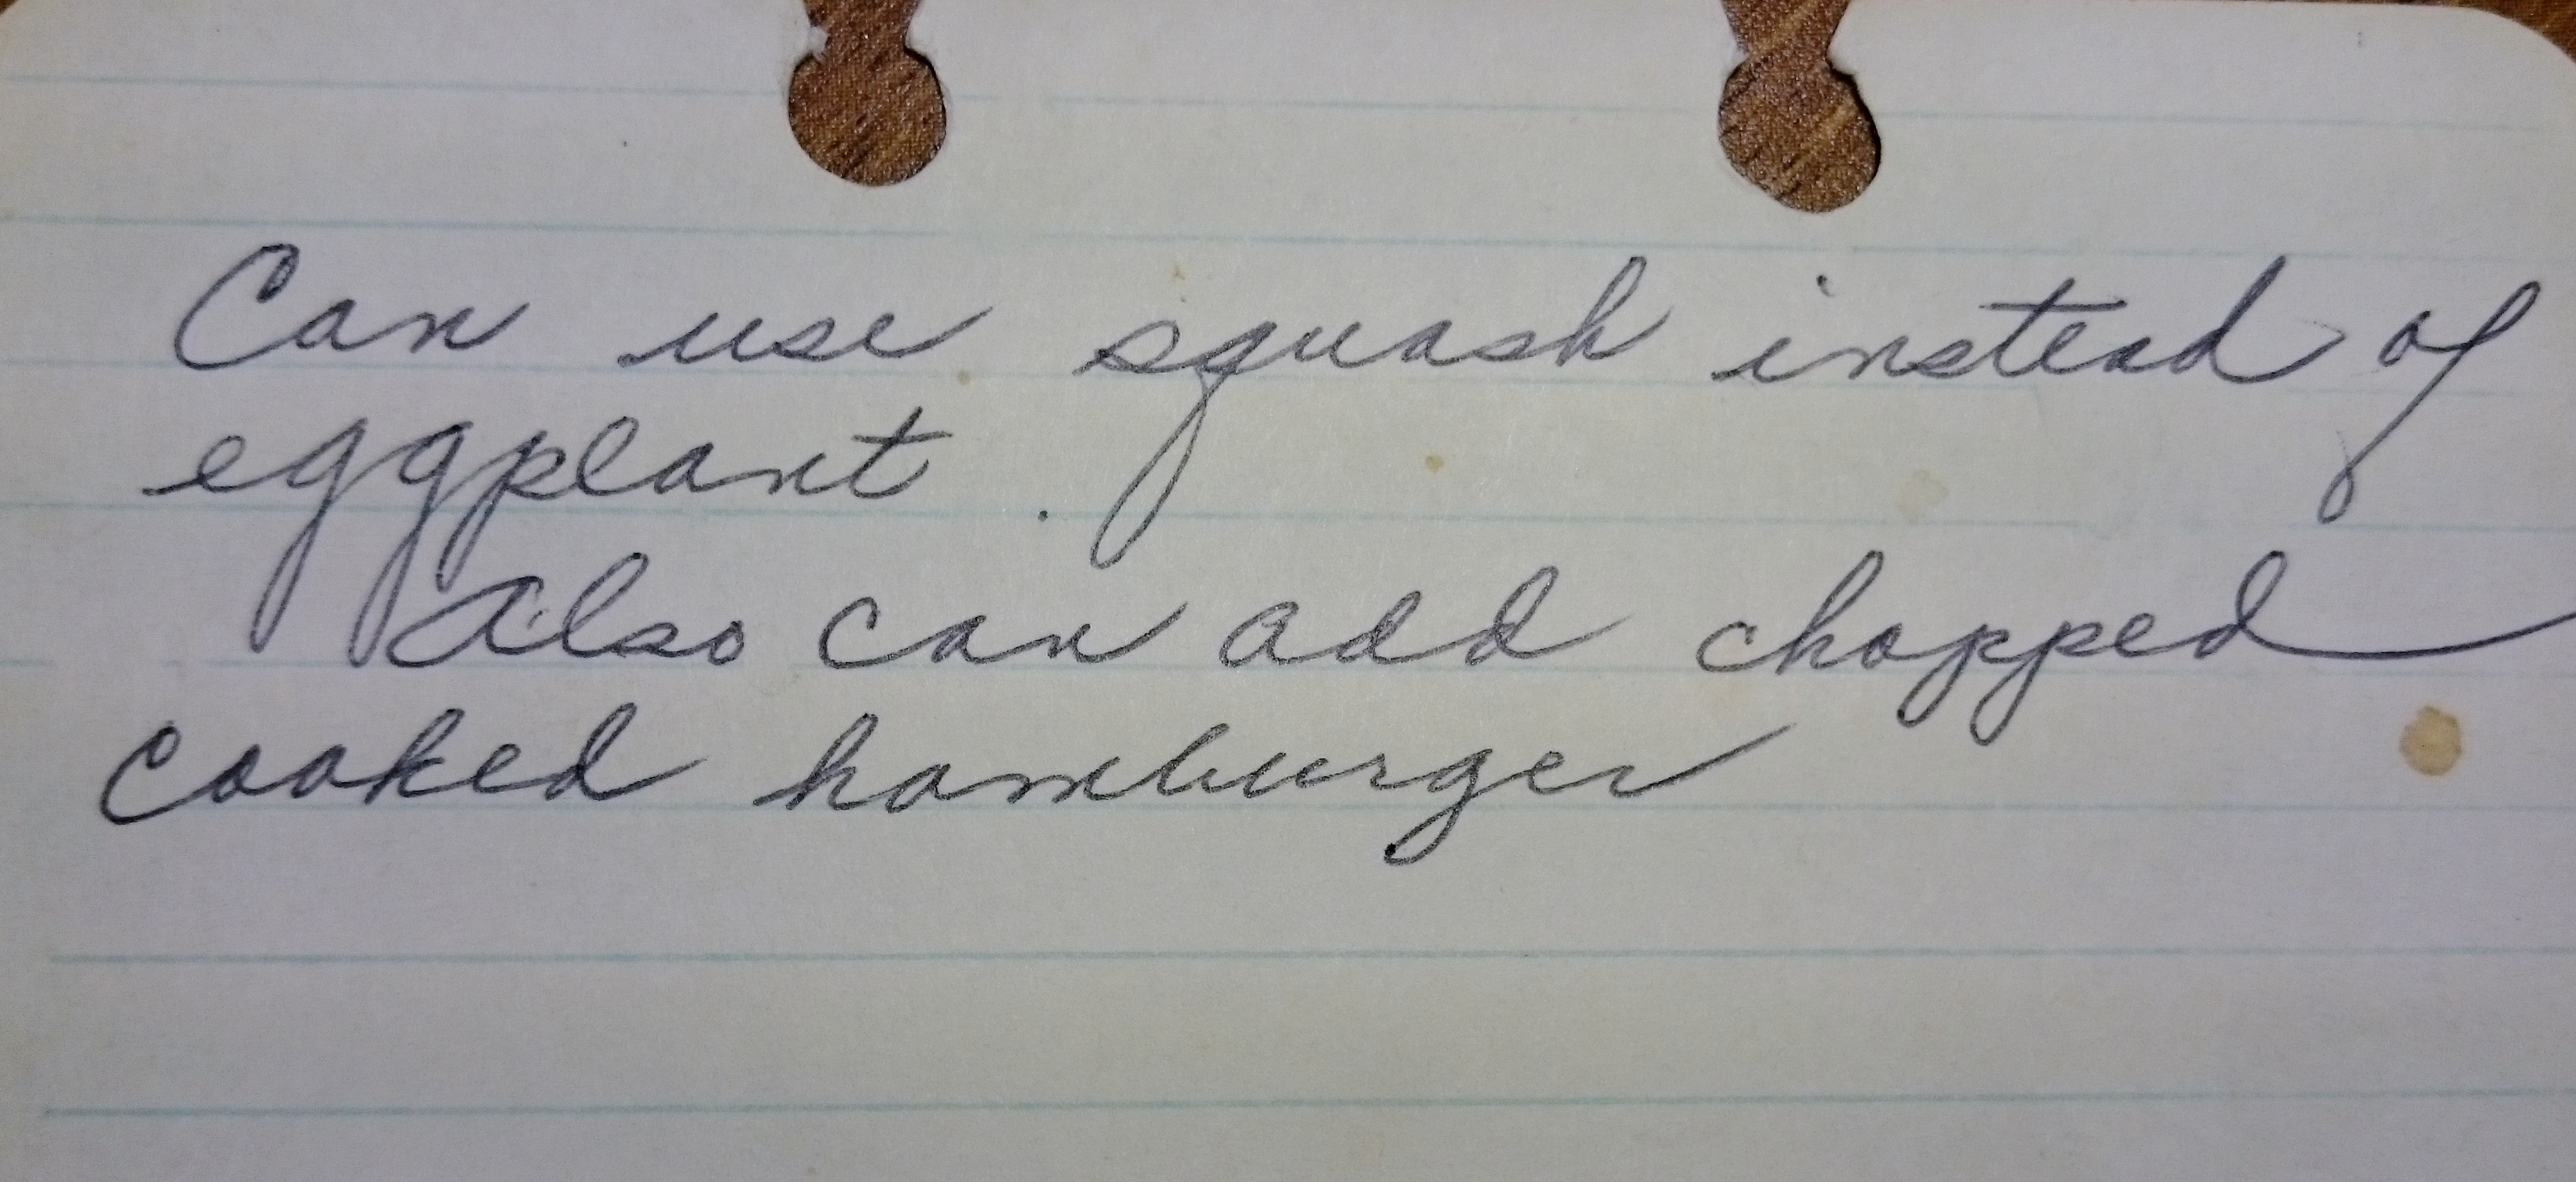 Can use squash instead of
eggplant.
Also can add chopped
cooked hamburger